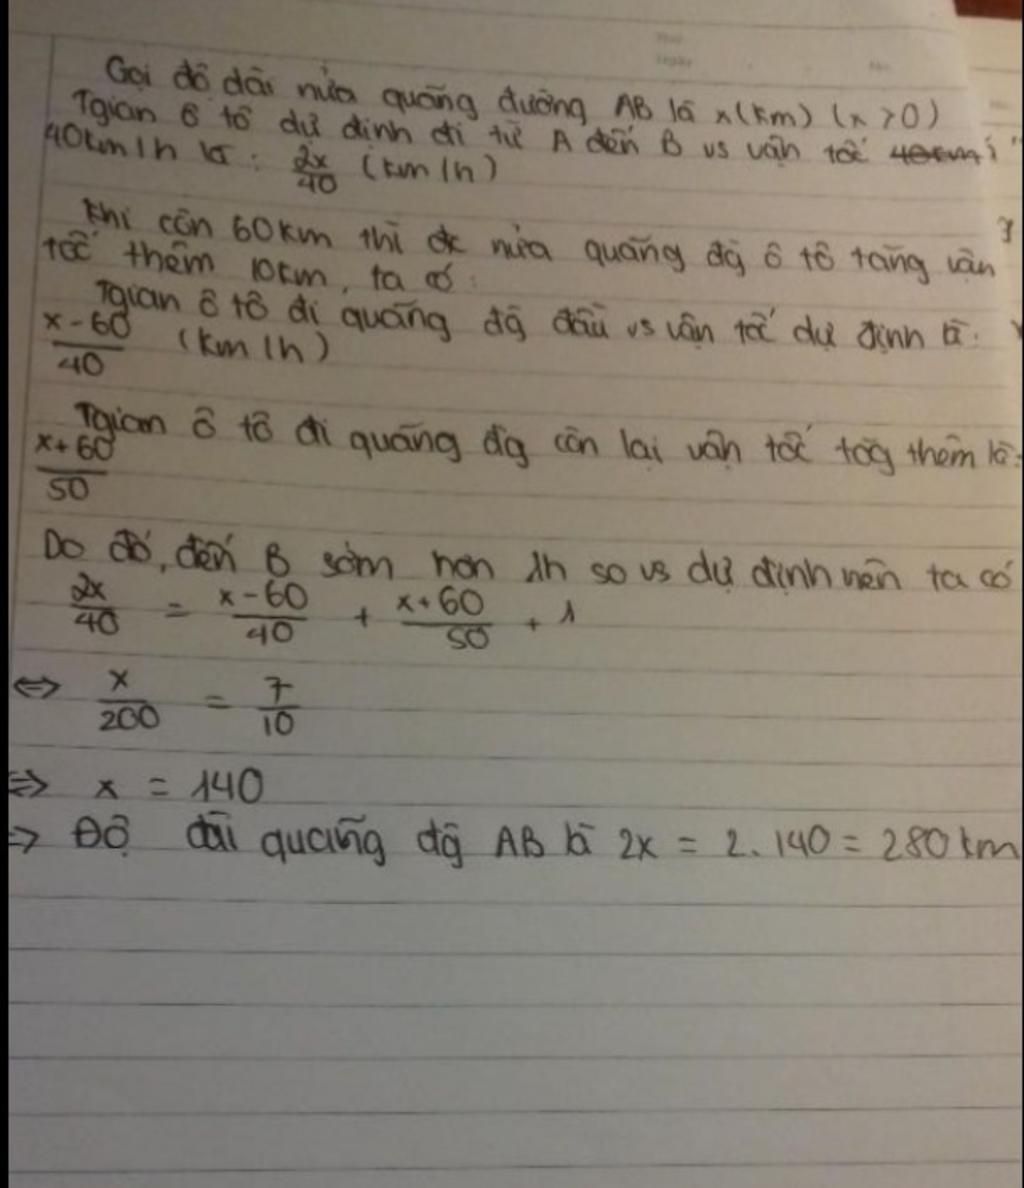 Gọi độ dài nửa quãng đường AB là x(km) (x > 0)
Tgian ô tô dự định đi từ A đến B vs vận tốc 40km
40km/h là : 2x/40 (km/h)
Khi còn 60km thì đc nửa quãng đg ô tô tăng vận
tốc thêm 10km, ta có :
Tgian ô tô đi quãng đg đầu vs vận tốc dự định là :
x-60/40 (km/h)
Tgian ô tô đi quãng đg còn lại vận tốc tăg thêm là :
x+60/50
Do đó, đến B sớm hơn 1h so vs dự định nên ta có
2x/40 = x-60/40 + x+60/50 + 1
⇔ x/200 = 7/10
⇒ x = 140
⇒ Độ dài quãng đg AB là 2x = 2.140 = 280km